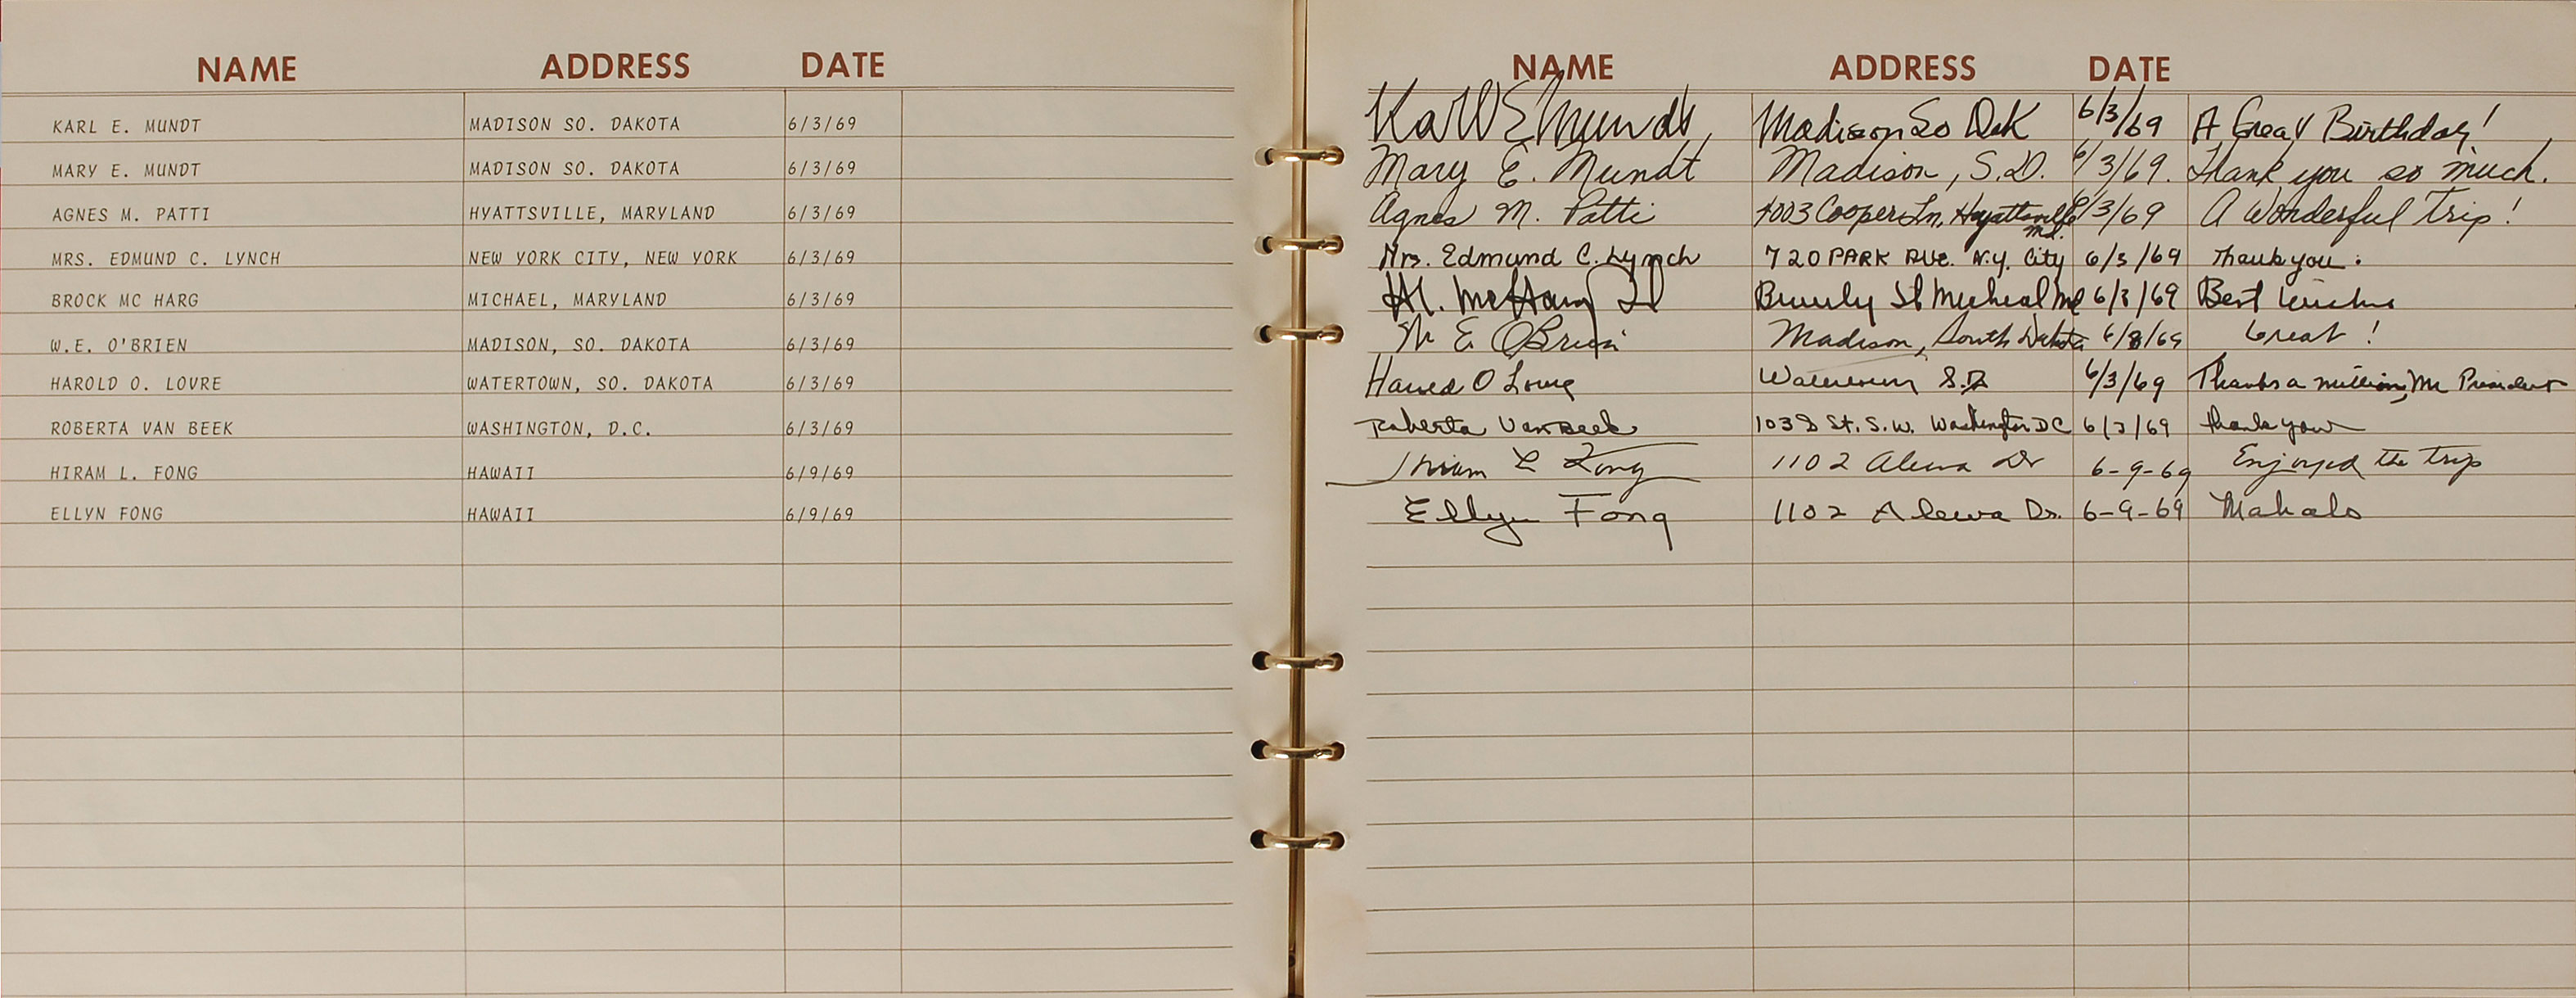 NAME ADDRESS DATE
KARL E. MUNDT MADISON SO. DAKOTA 6/3/69
MARY E. MUNDT MADISON SO. DAKOTA 6/3/69
AGNES M. PATTI HYATTSVILLE, MARYLAND 6/3/69
MRS. EDMUND C. LYNCH NEW YORK CITY, NEW YORK 6/3/69
BROCK MC HARG MICHAEL, MARYLAND 6/3/69
W.E. O'BRIEN MADISON, SO. DAKOTA 6/3/69
HAROLD O. LOVRE WATERTOWN, SO. DAKOTA 6/3/69
ROBERTA VAN BEEK WASHINGTON, D.C. 6/3/69
HIRAM L. FONG HAWAII 6/9/69
ELLYN FONG HAWAII 6/9/69
NAME ADDRESS DATE
Karl E Mundt Madison So Dak 6/3/69 A Great Birthday!
Mary E. Mundt Madison, S.D. 6/3/69. Thank you so much.
Agnes M. Patti Cooper Ln, Hyattsville Md. 6/3/69 A Wonderful trip!
Mrs. Edmund C. Lynch 720 PARK AVE. N.Y. City 6/3/69 Thank you.
McHarg St Micheal Md 6/3/69 Best wishes
W E O'Brien Madison, South Dakota 6/3/69 Great!
Harold O Lovre Watertown S.D. 6/3/69 Thanks a million, Mr President
Roberta Van Beek 103 St. S.W. Washington DC 6/3/69 Thank you
Hiram L Fong 1102 Alewa Dr 6-9-69 Enjoyed the trip
Ellyn Fong 1102 Alewa Dr. 6-9-69 Mahalo